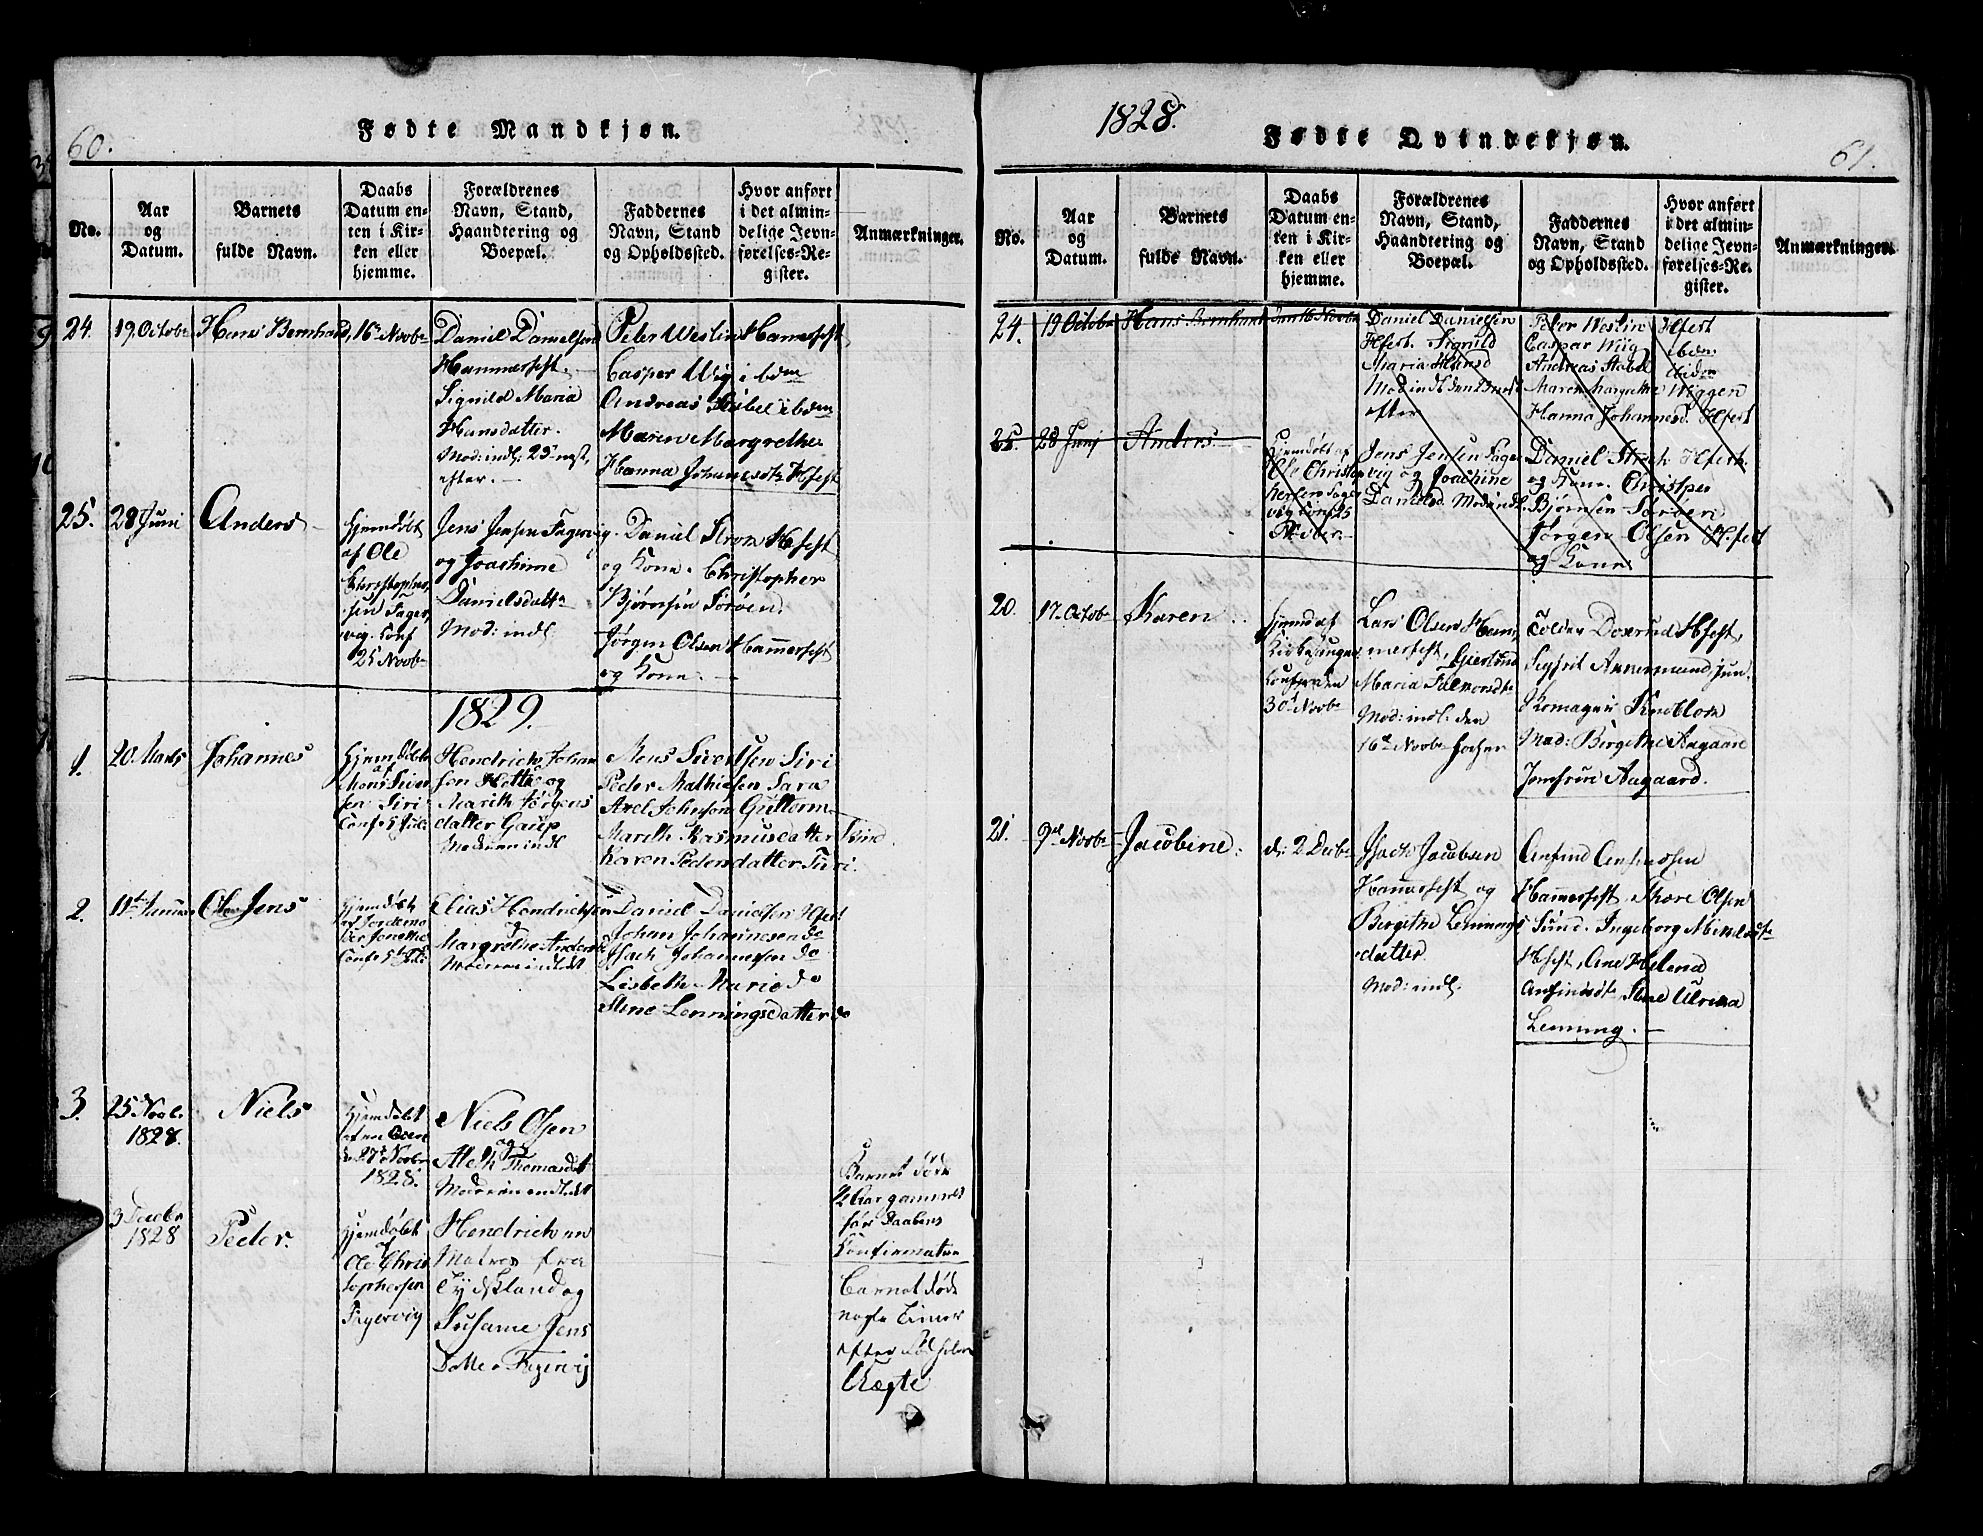 60.
Fødte Mandkjøn.
No.
Aar
og
Datum.
Barnets
fulde Navn.
Daabs
Datum en-
ten i Kir-
ken eller
hjemme.
Forældrenes
Navn, Stand,
Haandtering og
Boepæl.
Faddernes
Navn, Stand
og Opholdssted.
Hvor anført
i det almin-
delige Jevn-
førelses-Re-
gister.
Anmærkninger.
24.
19 Octobr
Hans Bernhard
16de Novbr
Daniel Danielsen
Hammerfest.
Sigrild Maria
Hansdatter.
Mod: indl: 23de næst
efter.
Peter Westin Hamerfest
Casper Wig ibdm
Andreas Stabel ibdm
Maren Margrethe
Hanna Johannesdtr Hfest
25.
28 Juni
Anders
Hjemdøbt
af Ole
Christopher
sen Fager
vig. Conf
25 Novbr
Jens Jensen Fagervig
og Joachime
Danielsdattr
Mod: indl.
Daniel Strom Hfest
og Kone. Christopher
Bjørnsen Sørøen
Jørgen Olsen Hammerfest
og Kone.
1829.
1.
20 Marts
Johannes
Hjemdøbt
af
Mons Siver
sen Siri
Conf 5 Juli
Hendrich Johan
sen Hotte og
Marith Jørgens
datter Gaup
Moderen indl
Mons Sivertsen Siri
Peder Mathiesen Sara
Axel Johnsen Guttorm
Marith Rasmusdatter
Karen Pedersdatter Siri.
2.
11te Januar
Ole Jens
Hjemdøbt
af Jordemo
der Jonethe
Conf 5te Juli
Elias Hendrichsen
og
Margrethe Andersdr
Moderen indledt
Daniel Danielsen Hfest
Johan Johannesen do
Isach Johannesen do
Lisbeth Marie do
Stine Lenningsdatter do
3.
25 Novbr.
1828.
Niels
Hjemdøbt
27de Novbr
1828.
Niels Olsen
og
Aleth Thomasdtr
Moderen indledt
Barnet døde
2 Aar gammel
før Daabens
Confirmation
3 Decbr
1828
Peder.
Hjemdøbt
af
Ole Chris
tophersen
Fagervig
Hendrich en
Matros fra
Tydskland og
Susanne Jens
Datter Fagervig
Barnet døde
nogle Timer
efter Fødselen
Uægte
1828.
Fødte Qvindekjøn.
61.
No.
Aar
og
Datum.
Barnets
fulde Navn.
Daabs
Datum en-
ten i Kir-
ken eller
hjemme.
Forældrenes
Navn, Stand,
Haandtering og
Boepæl.
Faddernes
Navn, Stand
og Opholdssted.
Hvor anført
i det almin-
delige Jevn-
førelses-Re-
gister.
Anmærkninger.
24.
19 Octobr
Hans Bernhard
den 16 Novbr
Daniel Danielsen
Hfest. Sigrild
Maria Hansd
Mod indl den 23 næst
efter
Peter Westin Hfest
Caspar Wiig ibdm.
Andreas Stabel ibidem
Maren Margrethe Wiggen
Hanna Johannesd. Hfest
25.
28 Juni
Anders
Hjemdøbt af
Ole Christop
hersen Fager
vig Conf 25
Jens Jensen Fager
vig og Joachime
Danielsd. Mod: indl.
Daniel Strom Hfest.
og Kone. Christpr
Bjørnsen Sørøen
Jørgen Olsen Hfest
og Kone.
20.
17 Octobr
Karen
30te Novbr
Lars Olsen Ham
merfest, Gjertrud
Maria
Mod: indl. den
16de Novbr
Hfest,
Mad: Birgithe Aagaard
Jomfrue Aagaard.
21.
9de Novbr
Jacobine.
d: 2 Decbr
Isach Jacobsen
Hammerfest og
Birgithe Lennings
datter
Mod: indl:
Anfind Anfindsen
Hammerfest, Thore Olsen
Sund. Ingeborg
Hfest, Ane Helena
Anfindsdtr Stine Ulrica
Lenning.